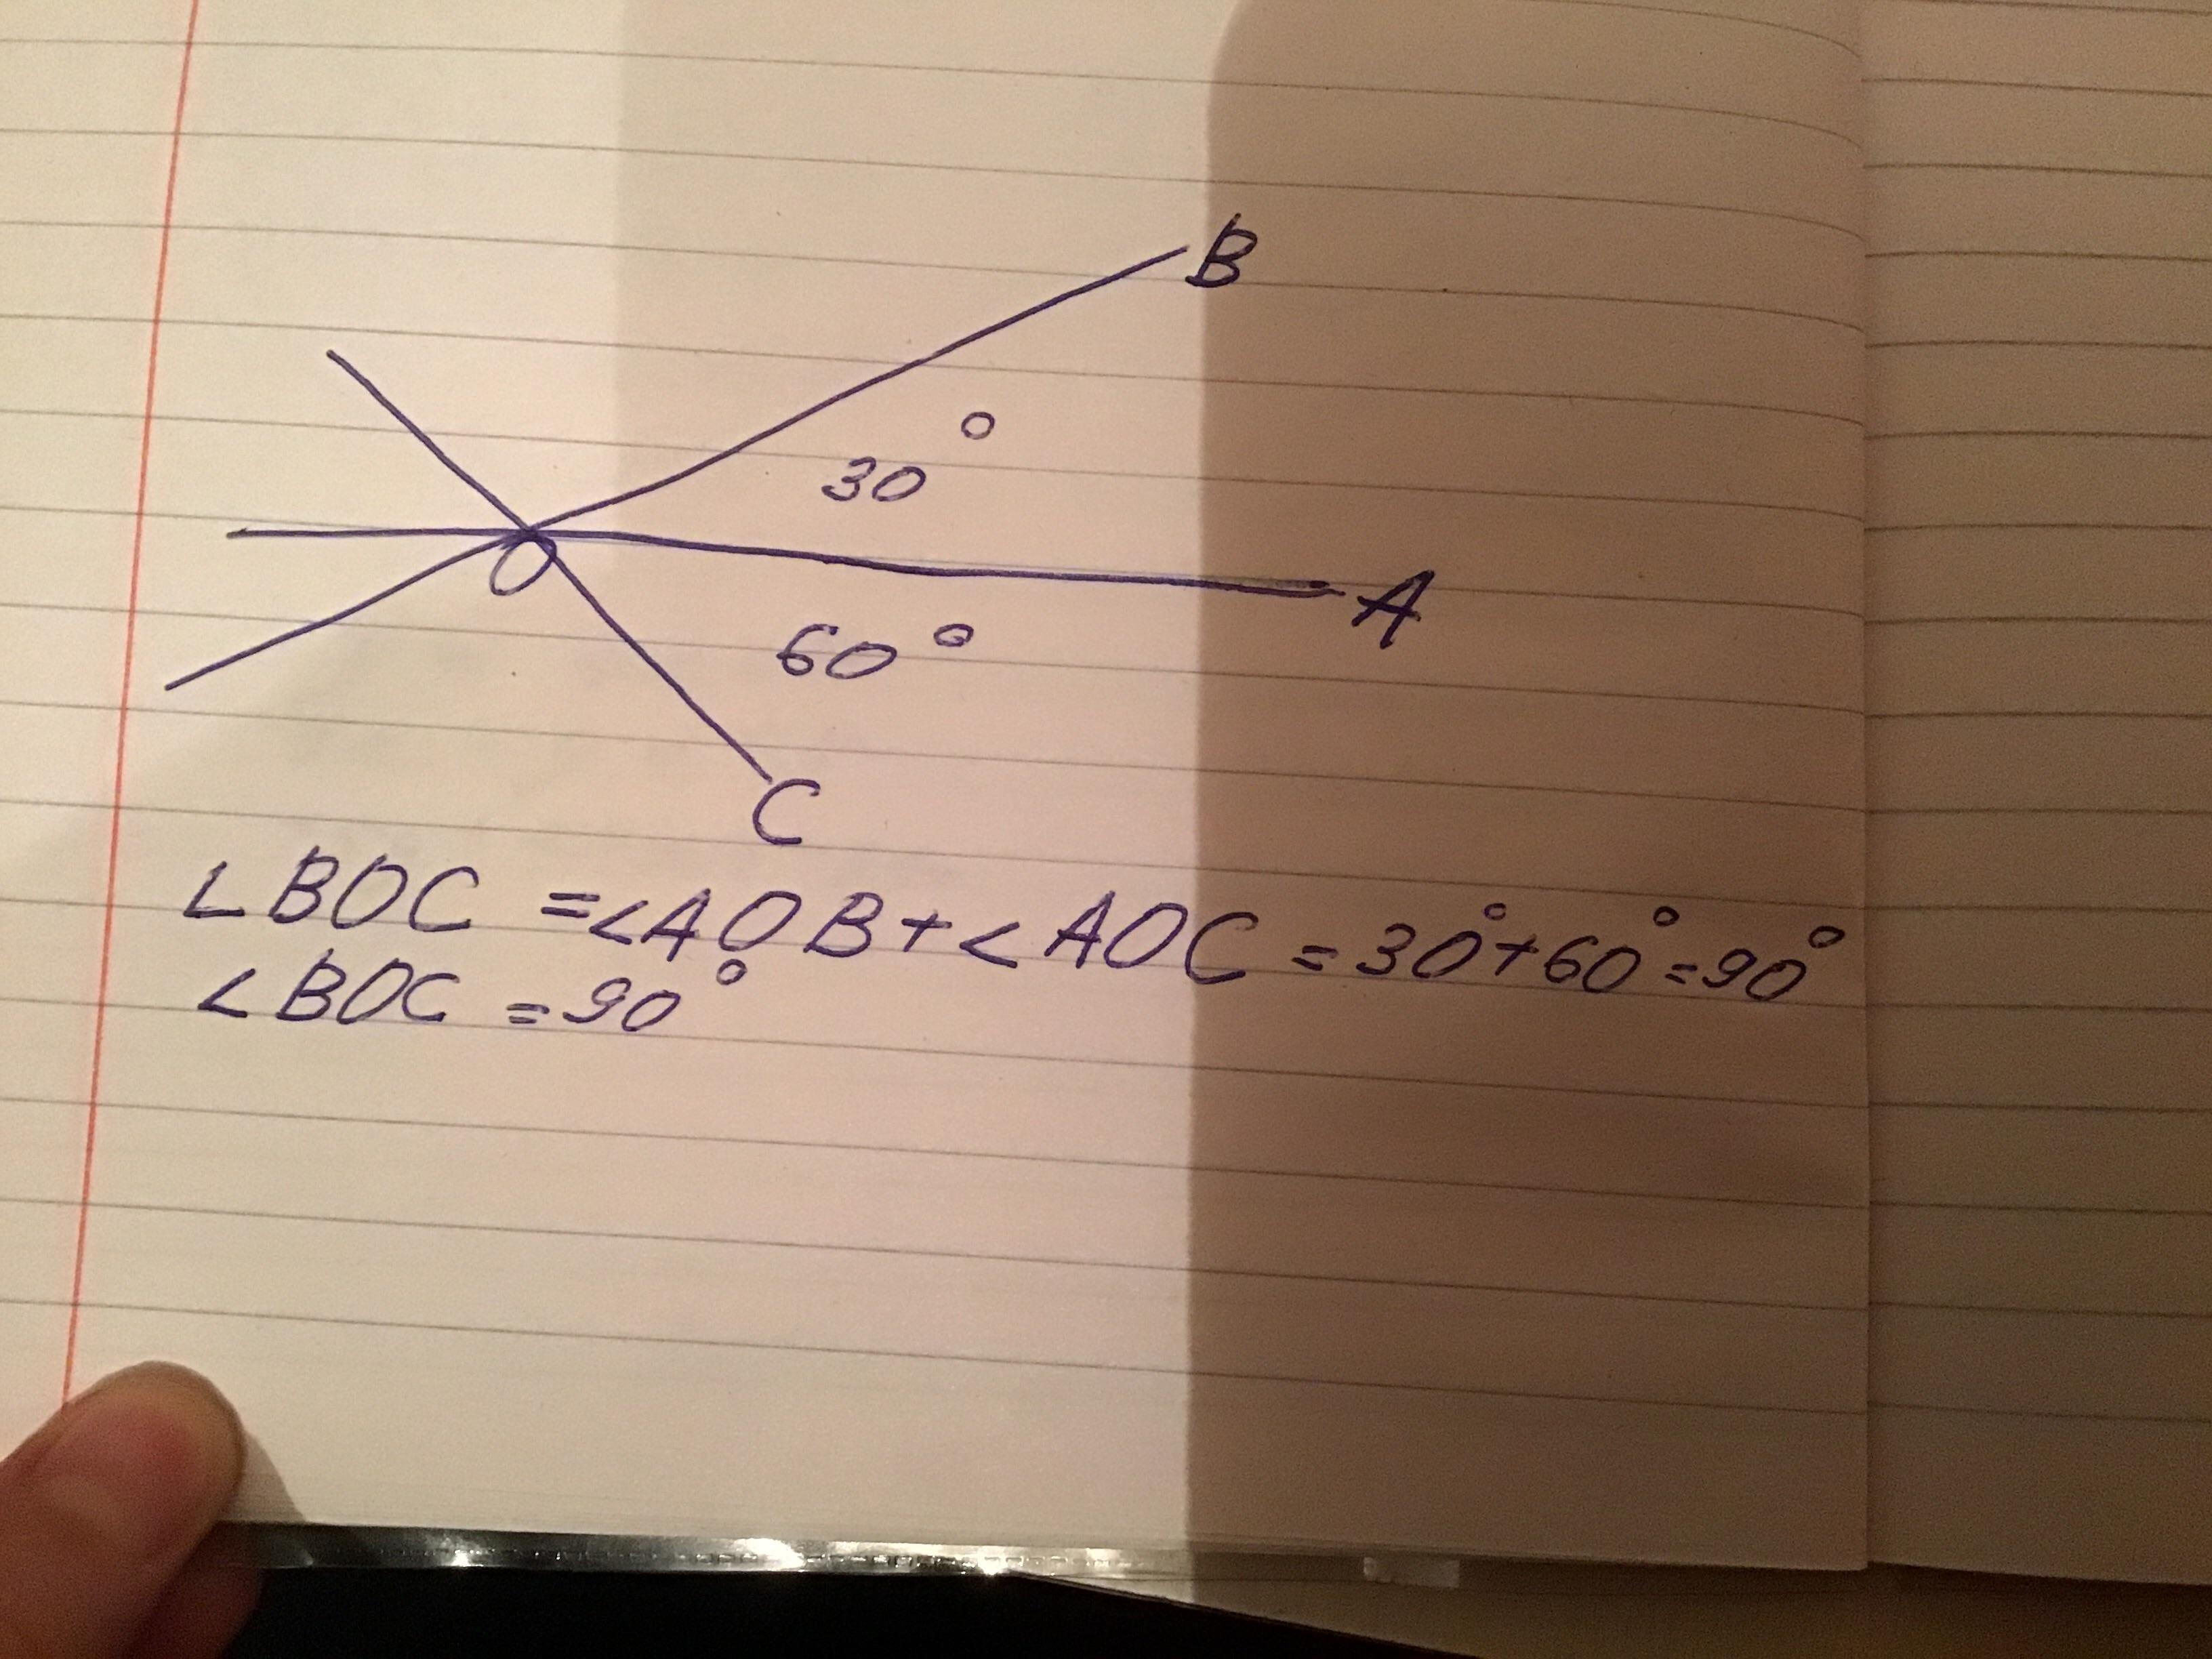 B
30°
O
A
60°
C
∠BOC = ∠AOB + ∠AOC = 30° + 60° = 90°
∠BOC = 90°